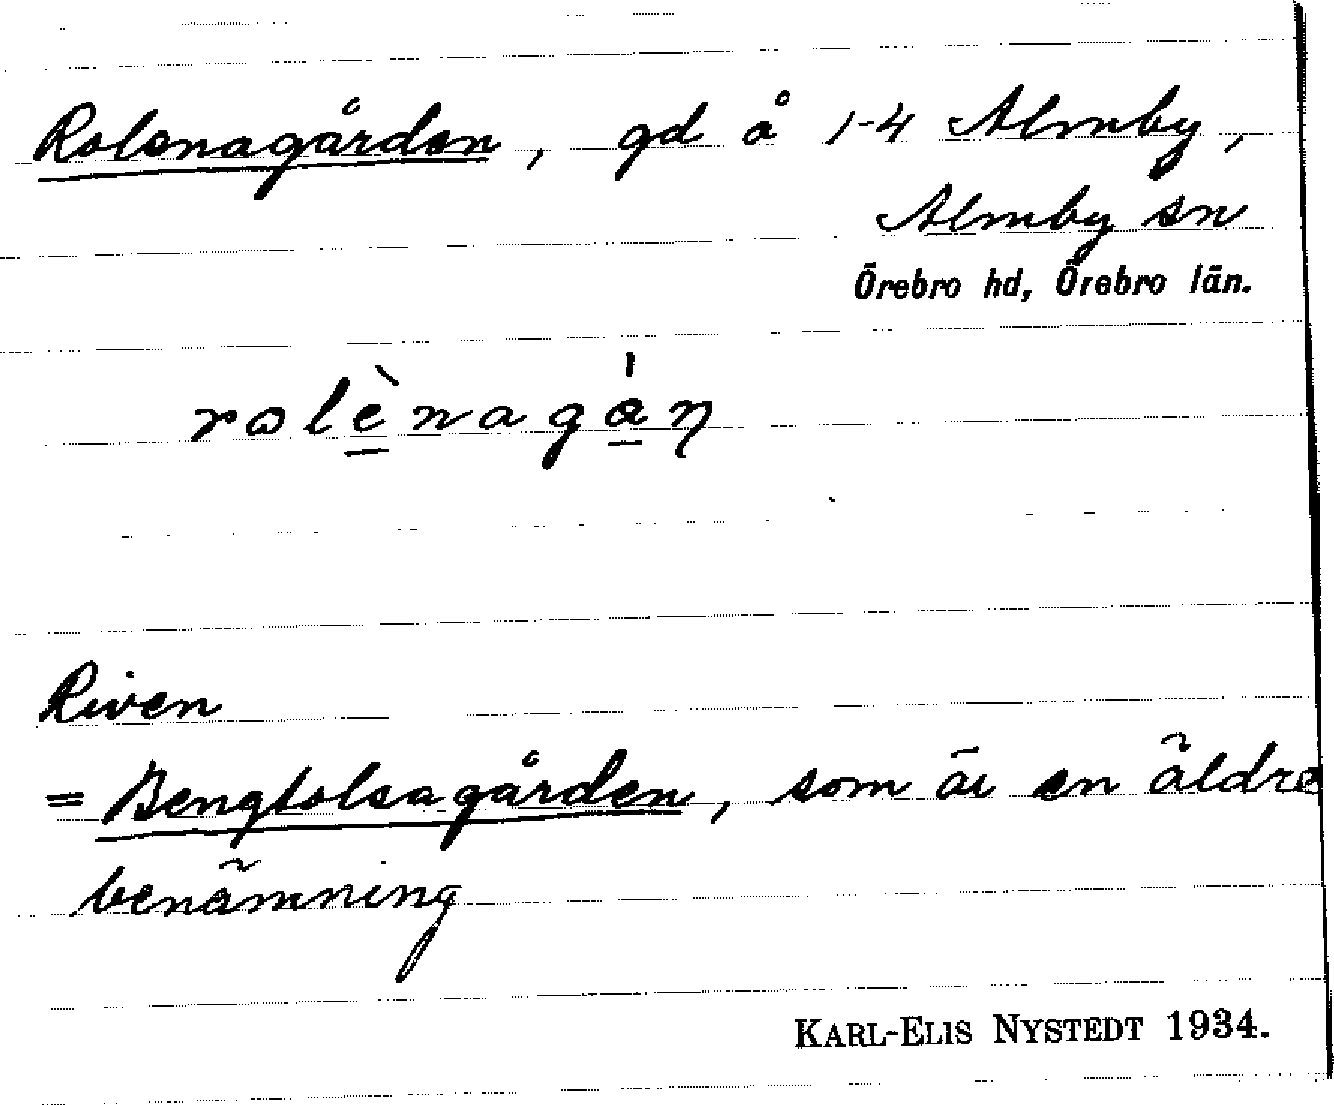 Rolenagården, gd å 1-4 Almby,
Almby sn
Örebro hd, Örebro län.
rωlènagán
Riven
= Bengtolsagården, som är en äldre
benämning
KARL-ELIS NYSTEDT 1934.